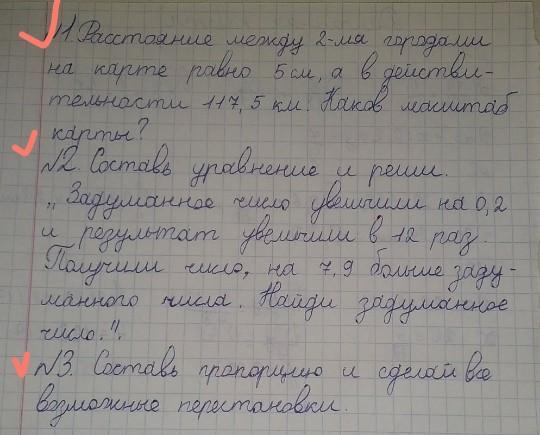 №1. Расстояние между 2-мя городами
на карте равно 5 см, а в действи-
тельности 117,5 км. Каков масштаб
карты?
№2. Составь уравнение и реши.
„Задуманное число увеличили на 0,2
и результат увеличили в 12 раз.
Получили число, на 7,9 больше заду-
манного числа. Найди задуманное
число.".
№3. Составь пропорцию и сделай все
возможные перестановки.